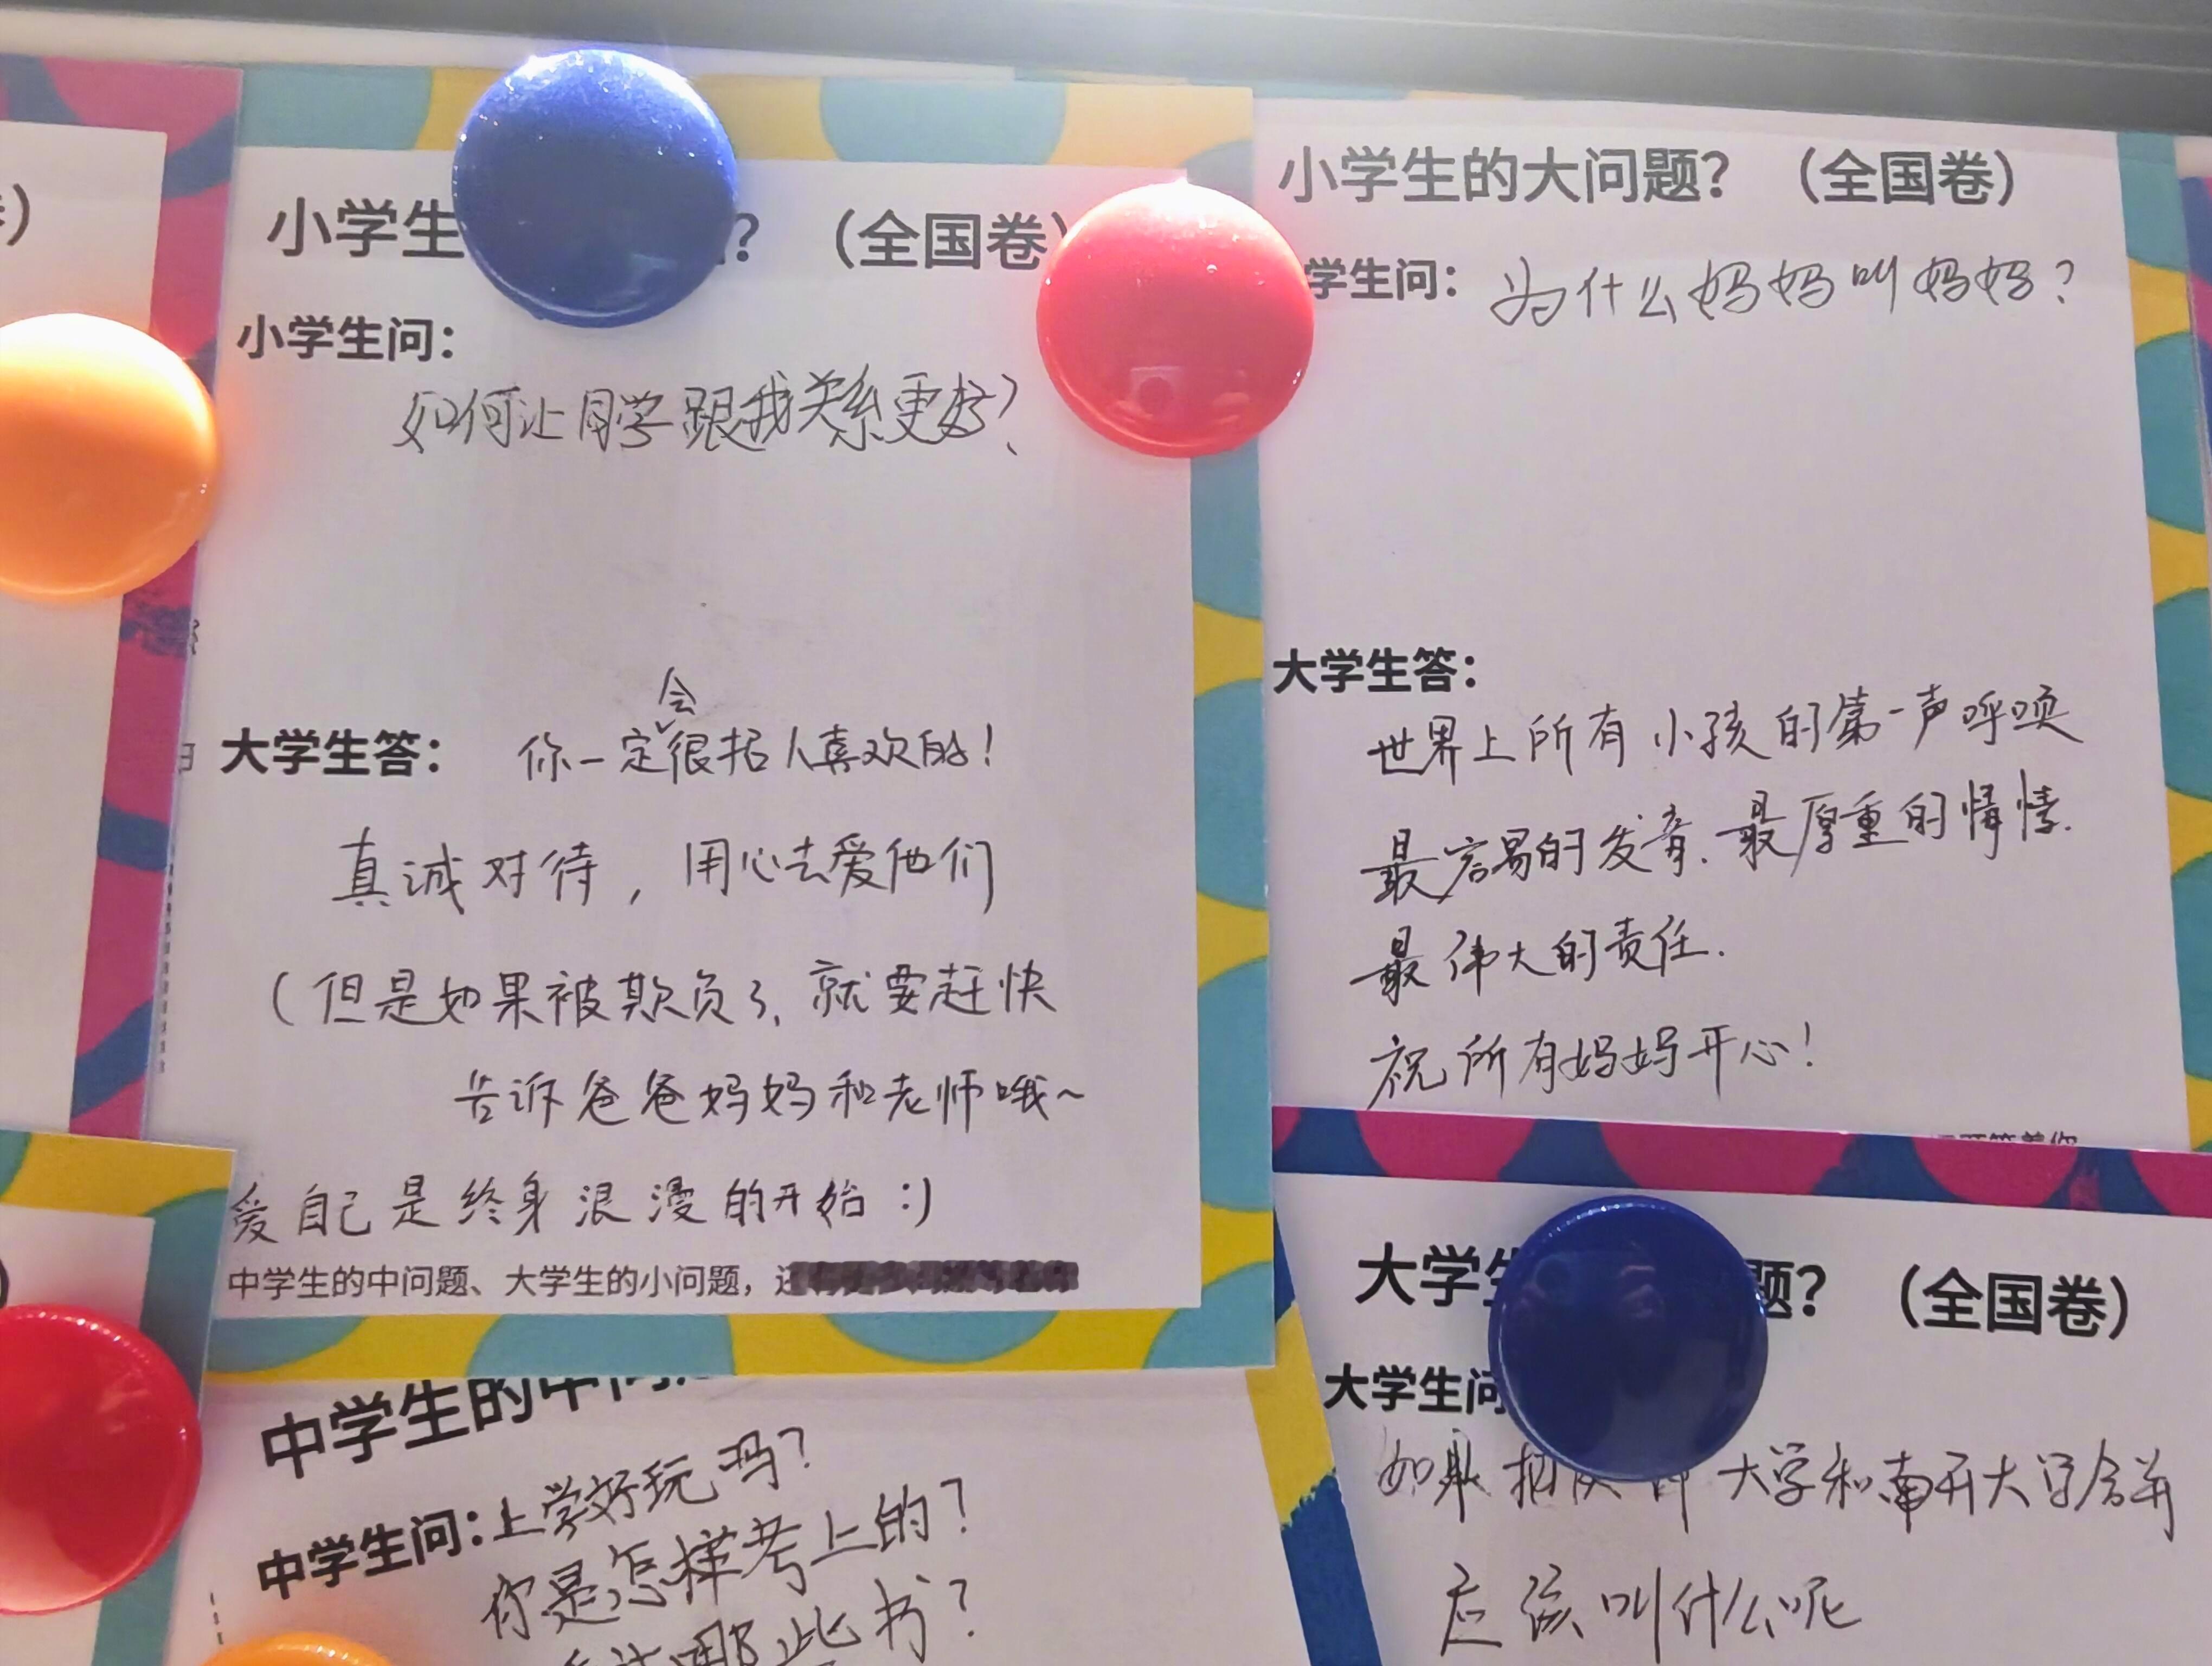 小学生
？（全国卷）
小学生问：
如何让同学跟我关系更好？
大学生答：
你一定会很招人喜欢的！
真诚对待，用心去爱他们
（但是如果被欺负了、就要赶快
告诉爸爸妈妈和老师哦~
爱自己是终身浪漫的开始 :)
中学生的中问题、大学生的小问题，
小学生的大问题？（全国卷）
学生问：
为什么妈妈叫妈妈？
大学生答：
世界上所有小孩的第一声呼唤
最容易的发音.最厚重的情愫.
最伟大的责任.
祝所有妈妈开心！
中学生的中问
中学生问：上学好玩吗？
你是怎样考上的？
哪些书？
大学生
题？（全国卷）
大学生问
如果
大学和南开大学合并
应该叫什么呢